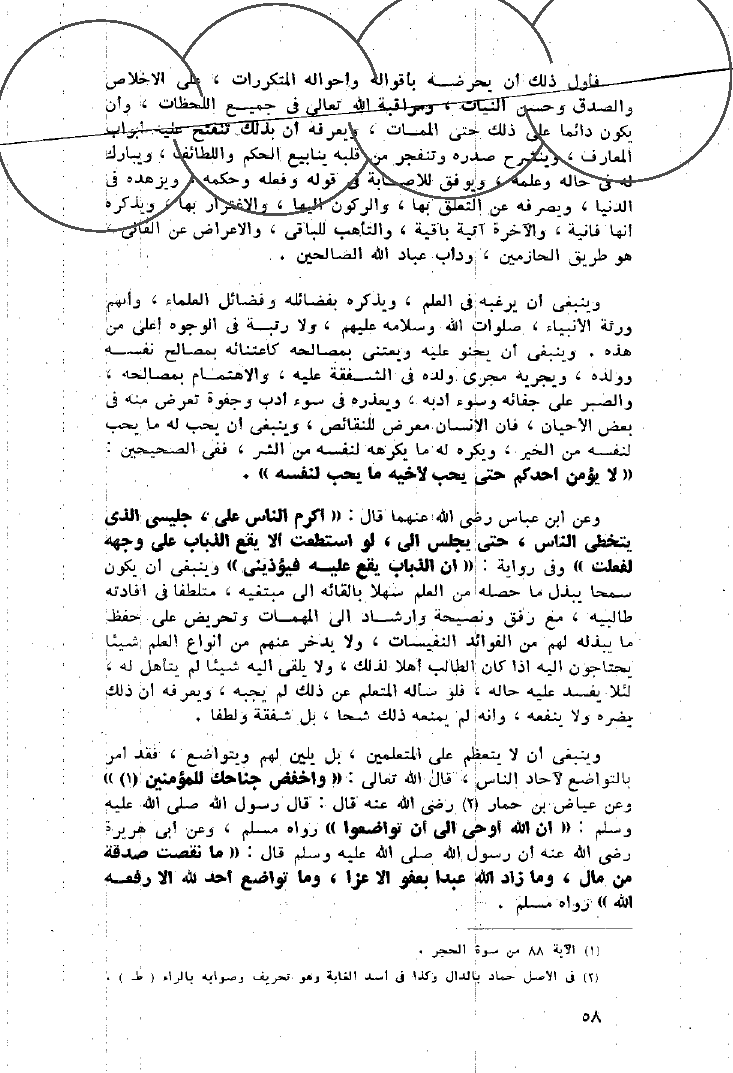 فأول ذلك أن يحرضه بأقواله وأحواله المتكررات ، على الاخلاص
والصدق وحسن النيات ، ومراقبة الله تعالى فى جميع اللحظات ، وأن
يكون دائما على ذلك حتى الممات ، ويعرفه أن بذلك تنفتح عليه أبواب
المعارف ، وينشرح صدره وتنفجر من قلبه ينابيع الحكم واللطائف ، ويبارك
له فى حاله وعلمه ، ويوفق للاصابة فى قوله وفعله وحكمه ، ويزهده فى
الدنيا ، ويصرفه عن التعلق بها ، والركون اليها ، والاغترار بها ، ويذكره
أنها فانية ، والآخرة آتية باقية ، والتأهب للباقى ، والاعراض عن الفانى ،
هو طريق الحازمين ، ودأب عباد الله الصالحين .
وينبغى أن يرغبه فى العلم ، ويذكره بفضائله وفضائل العلماء ، وأنهم
ورثة الأنبياء ، صلوات الله وسلامه عليهم ، ولا رتبة فى الوجوه أعلى من
هذه . وينبغى أن يحنو عليه ويعتنى بمصالحه كاعتنائه بمصالح نفسه
وولده ، ويجريه مجرى ولده فى الشفقة عليه ، والاهتمام بمصالحه ،
والصبر على جفائه وسوء أدبه ، ويعذره فى سوء أدب وجفوة تعرض منه فى
بعض الأحيان ، فان الانسان معرض للنقائص ، وينبغى أن يحب له ما يحب
لنفسه من الخير ، ويكره له ما يكرهه لنفسه من الشر ، ففى الصحيحين :
« لا يؤمن أحدكم حتى يحب لأخيه ما يحب لنفسه » .
وعن ابن عباس رضى الله عنهما قال : « أكرم الناس على ، جليسى الذى
يتخطى الناس ، حتى يجلس الى ، لو استطعت ألا يقع الذباب على وجهه
لفعلت » وفى رواية : « ان الذباب يقع عليه فيؤذينى » وينبغى أن يكون
سمحا يبذل ما حصله من العلم سهلا بالقائه الى مبتغيه ، متلطفا فى افادته
طالبيه ، مع رفق ونصيحة وارشاد الى المهمات وتحريض على حفظ
ما يبذله لهم من الفوائد النفيسات ، ولا يدخر عنهم من أنواع العلم شيئا
يحتاجون اليه اذا كان الطالب أهلا لذلك ، ولا يلقى اليه شيئا لم يتأهل له ،
لئلا يفسد عليه حاله ، فلو سأله المتعلم عن ذلك لم يجبه ، ويعرفه أن ذلك
يضره ولا ينفعه ، وانه لم يمنعه ذلك شحا ، بل شفقة ولطفا .
وينبغى أن لا يتعظم على المتعلمين ، بل يلين لهم ويتواضع ، فقد أمر
بالتواضع لآحاد الناس ، قال الله تعالى : « واخفض جناحك للمؤمنين (١) »
وعن عياض بن حمار (٢) رضى الله عنه قال : قال رسول الله صلى الله عليه
وسلم : « ان الله أوحى الى أن تواضعوا » رواه مسلم ، وعن أبى هريرة
رضى الله عنه أن رسول الله صلى الله عليه وسلم قال : « ما نقصت صدقة
من مال ، وما زاد الله عبدا بعفو الا عزا ، وما تواضع أحد لله الا رفعه
الله » رواه مسلم .
(١) الآية ٨٨ من سوة الحجر .
(٢) فى الأصل حماد بالدال وكذا فى أسد الغابة وهو تحريف وصوابه بالراء ( ط ) .
٥٨